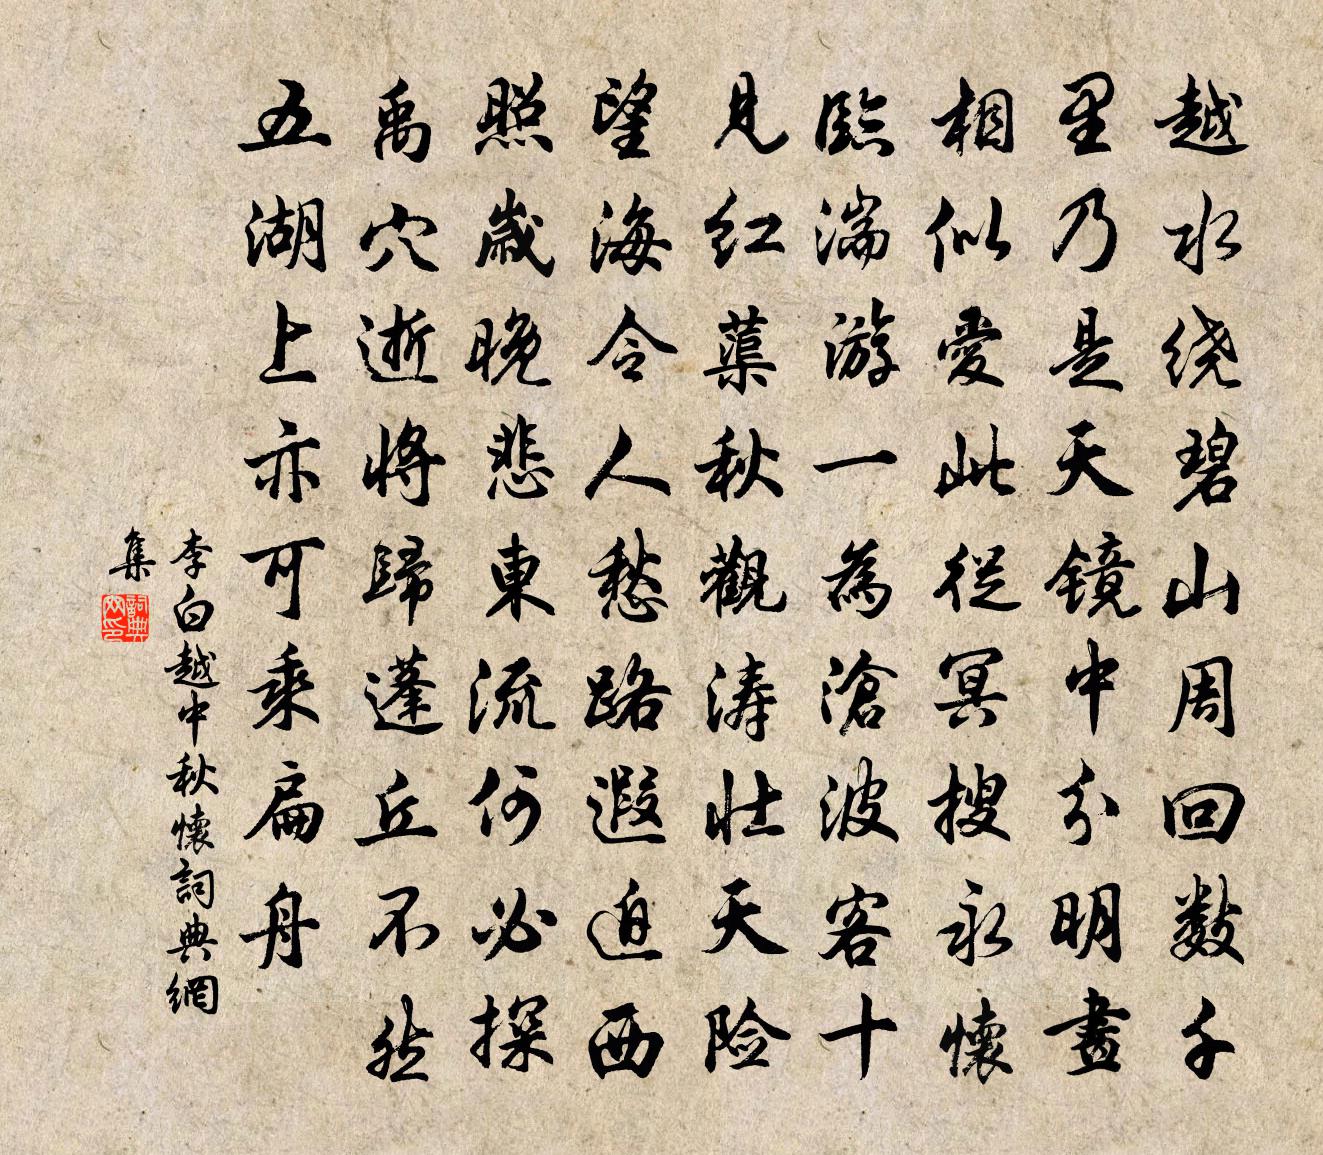 越水绕碧山周回数千
里乃是天镜中分明畫
相似愛此從冥搜永懷
臨湍游一為滄波客十
見红蕖秋觀涛壯天险
望海令人愁路遐迫西
照嵗晚悲東流何必探
禹穴逝將歸蓬丘不然
五湖上亦可乘扁舟
李白越中秋懷詞典網
集
詞典
网印